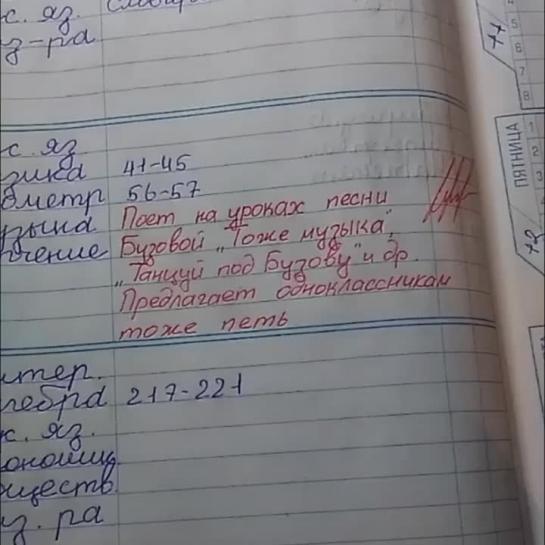 с. яз.
з-ра
с. яз.
зика 41-45
ометр 56-57
зыка Поет на уроках песни
чение Бузовой „Тоже музыка",
„Танцуй под Бузову" и др.
Предлагает одноклассникам
тоже петь
итер.
гебра 217-221
с. яз.
ономиц
ществ.
з. ра
77
5
6
7
8
ПЯТНИЦА
1
2
3